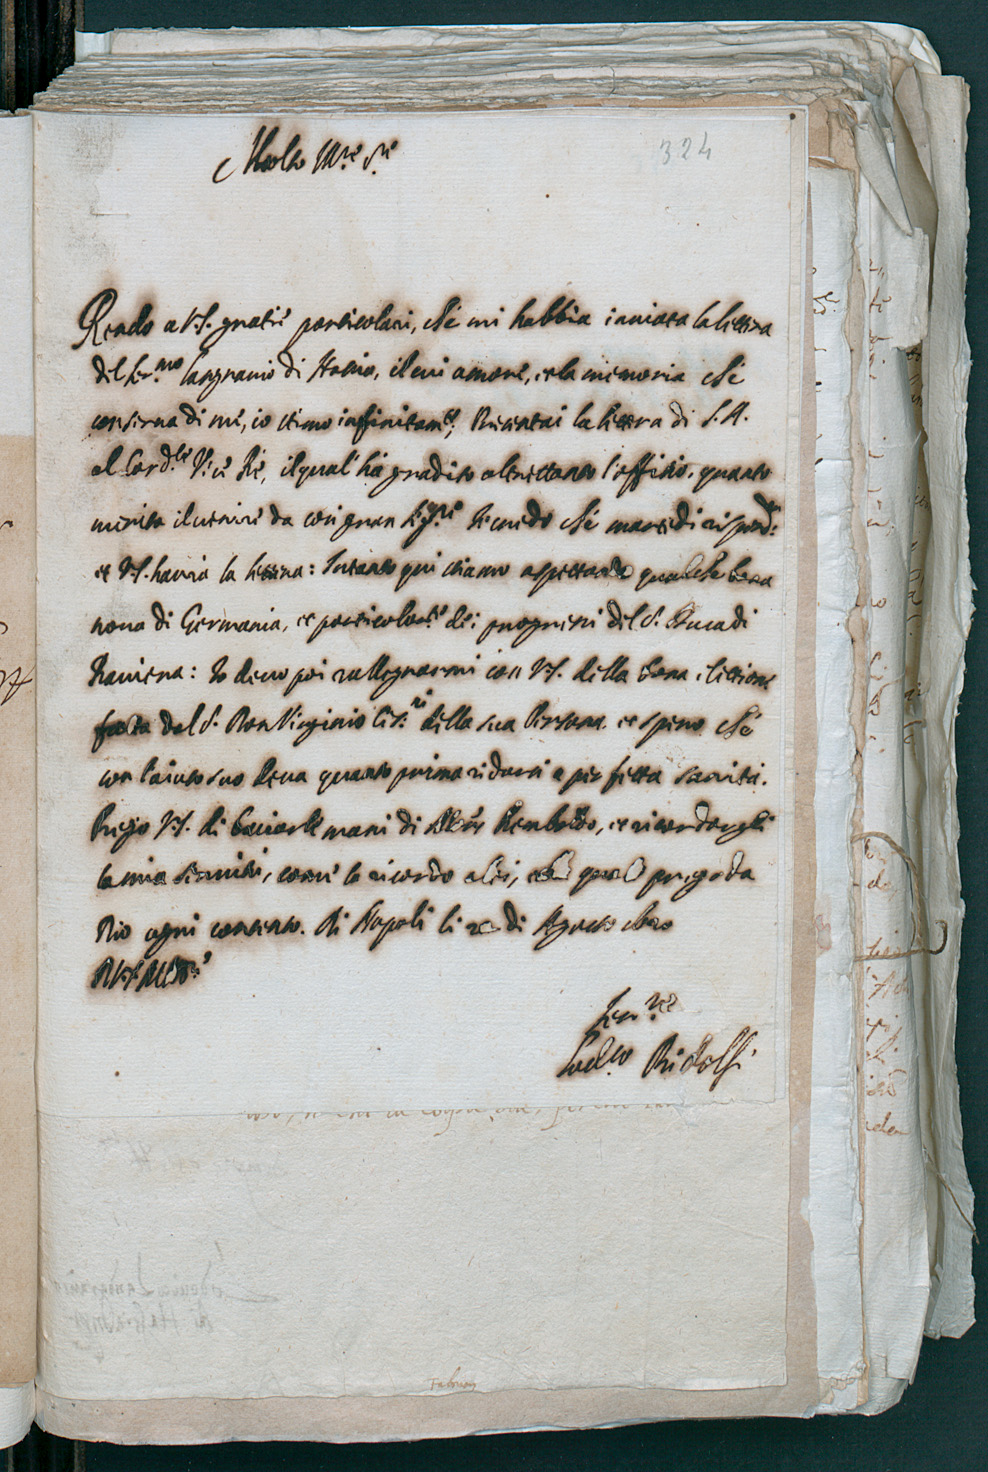 324
Molto Ill.re S.re
Rendo a V.S. gratie particolari, che mi habbia inviata la lettera
del Ser.mo Langravio di Hassia, il cui amore, et la memoria che
conserva di me, io stimo infinitam.te; Presentai la lettera di S.A.
al Card.le Vice Rè, il qual' hà gradito altrettanto l'offitio, quanto
merita il venire da così gran Sig.re Et credo che martedi risponderà:
et V.S. havrà la lettera: Intanto qui stiamo aspettando qualche bona
nova di Germania, et particolar.te dei progressi del S. Duca di
Baviera: Io devo poi rallegrarmi con V.S. della bona elettione
fatta dal S. Don Virginio Ces.ni della sua Persona. et spero che
con l'aiuto suo deva quanto prima ridursi a perfetta sanità.
Prego V.S. di baciar le mani di Mons.r Remboldo, et ricordargli
la mia servitù, come la ricordo a lei, alla quale prego da
Dio ogni contento. Di Napoli li di Agosto 1620
D.V.S. M. Ill.re
Ser.re
Lod.co Ridolfi
Fabrum